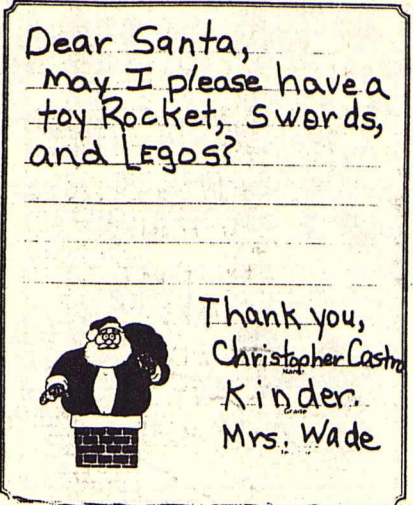 Dear Santa,
may I please have a
toy Rocket, Swords,
and LEgos?
Thank you,
Christopher Castro
Name
Kinder.
Grade
Mrs. Wade